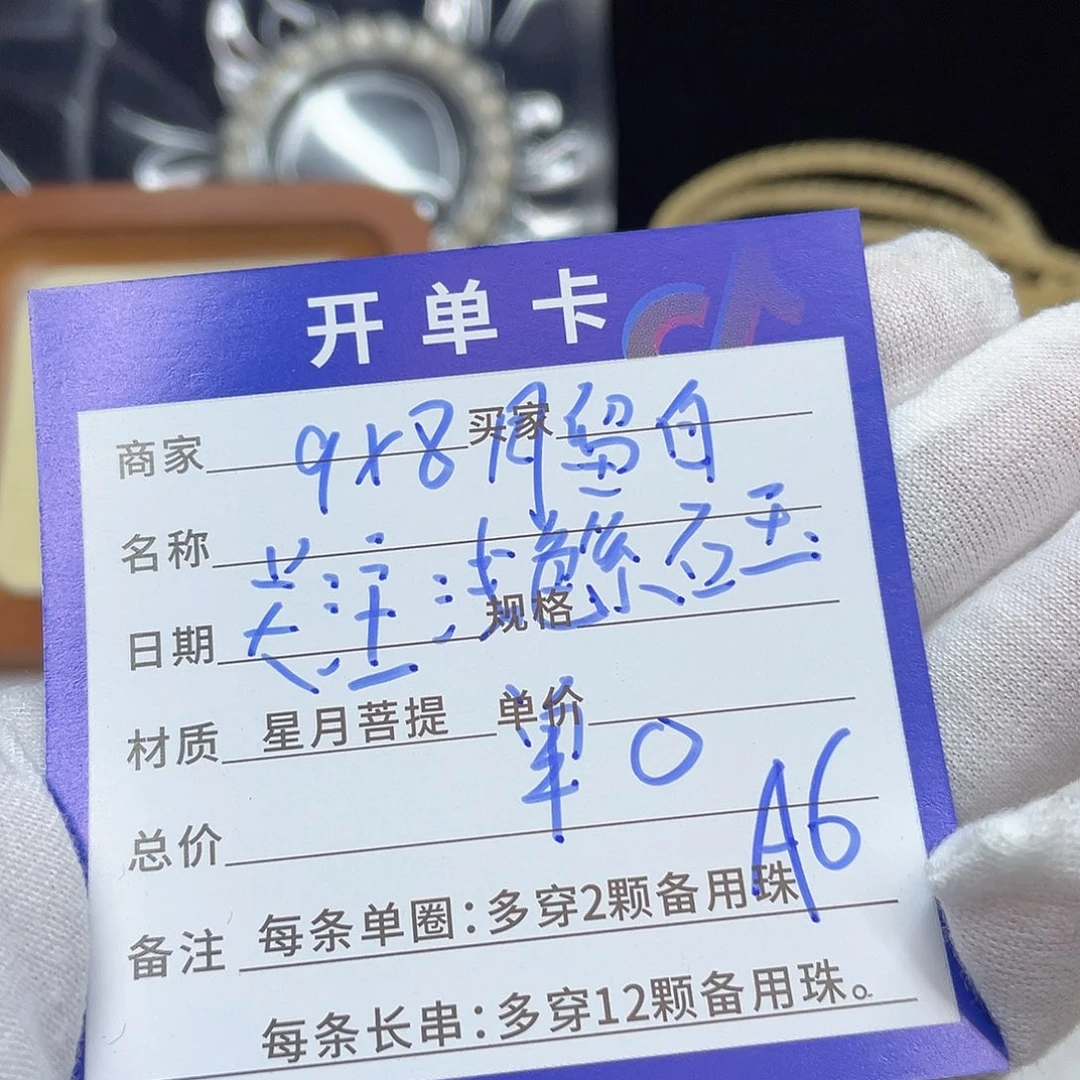 开单卡
商家 9x8月留白 买家
名称
关注浅色紫石玉
日期 规格
材质 星月菩提 单价
单 0
总价
A6
备注 每条单圈：多穿2颗备用珠
每条长串：多穿12颗备用珠。